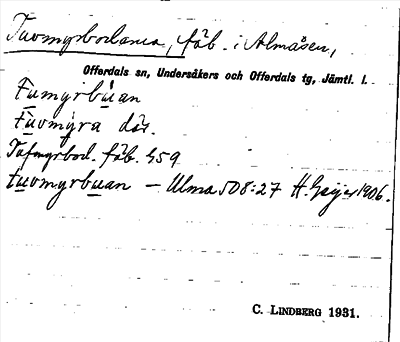 Tuvmyrbodarna, fäb. i Almåsen,
Offerdals sn, Undersåkers och Offerdals tg, Jämtl. l.
Tumyrbuan
tuvmyra där.
Tufmyrbod. fäb. 459
tuvmyrbuan – Ulma 508:27 H. Geijer 1906.
C. LINDBERG 1931.